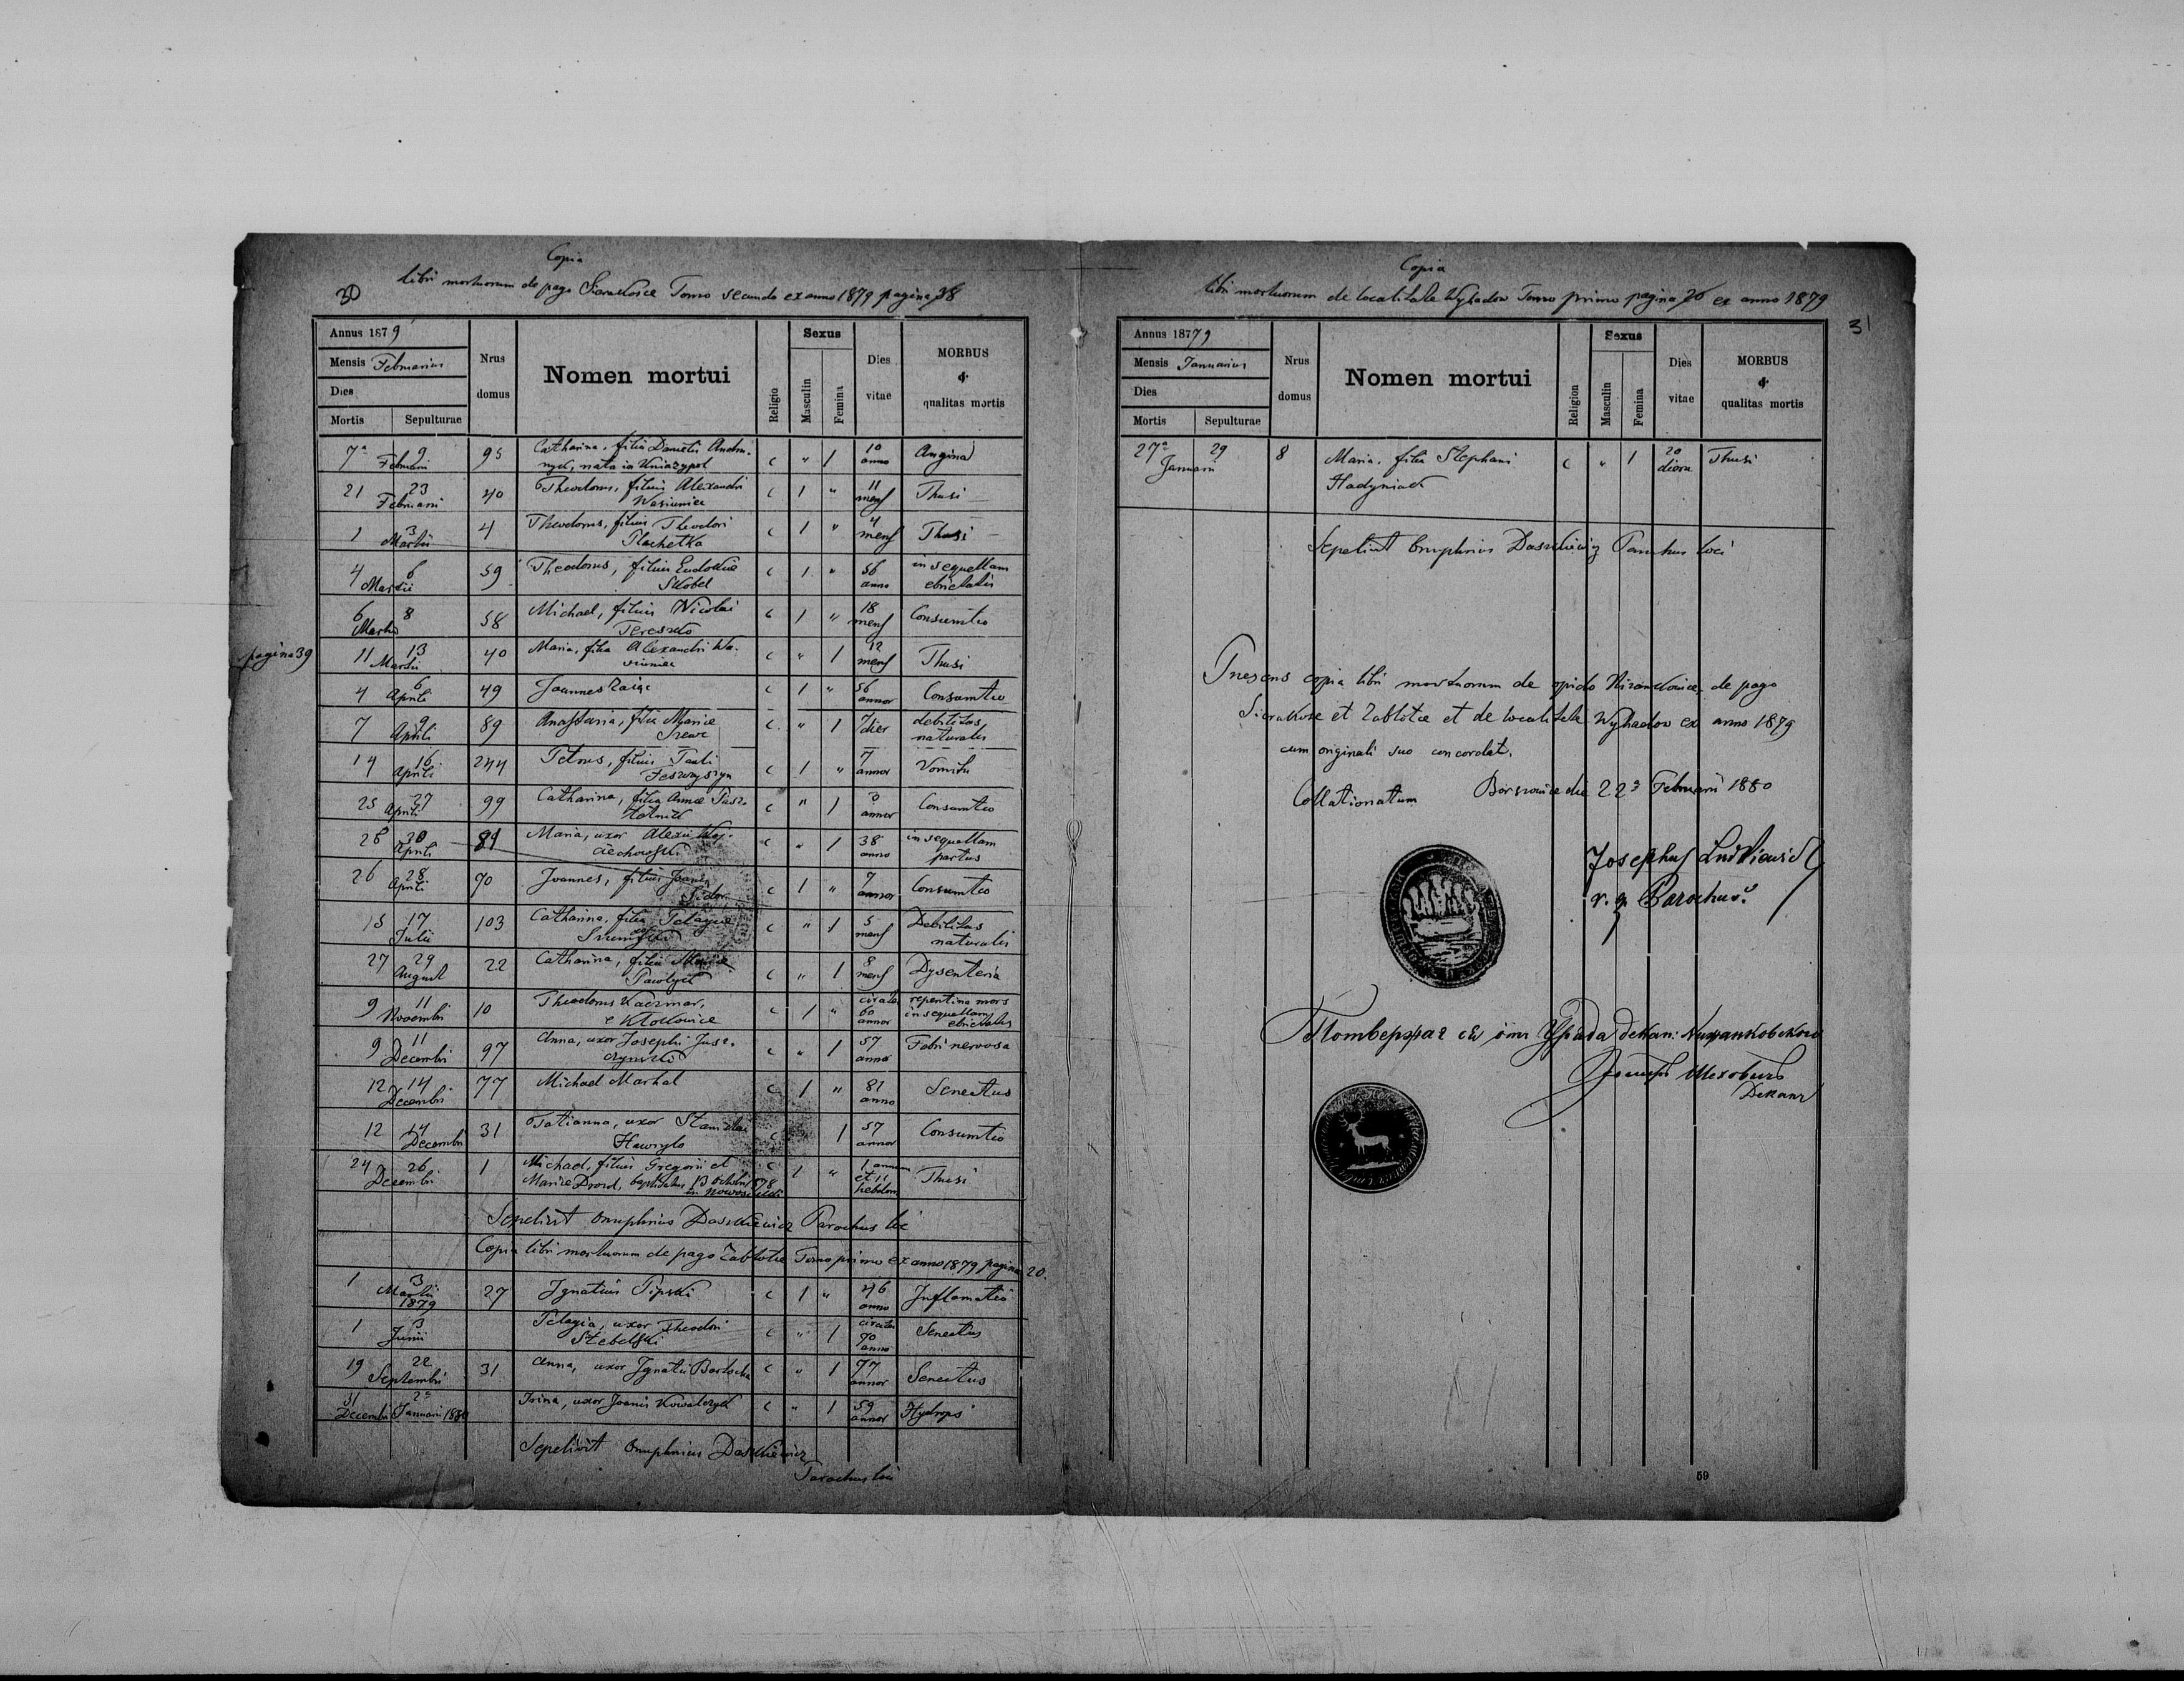 30
Copia
libri mortuorum de pago Sierakosce Tomo secundo ex anno 1879 pagina 38
Annus 1879
Mensis Februarius
Dies
Mortis Sepulturae
Nrus domus
Nomen mortui
Religio
Sexus
Masculin
Femina
Dies vitae
MORBUS
&
qualitas mortis
7a 9 Februarii 95 Catharina, filia Danielis Andru-
nyk, nata in Kniazypol c " 1 10 anno Angina
21 23 Februarii 40 Theodorus, filius Alexandri
Wasiuniec c 1 " 11 mens Thusi
1 3 Martii 4 Theodorus, filius Theodori
Plachetka c 1 " 4 mens Thusi
4 6 Martii 59 Theodorus, filius Eudokiae
Skobel c 1 " 56 anno in sequellam
ebrietatis
6 8 Martii 58 Michael, filius Nicolai
Tereszko c 1 " 18 mens Consumtio
pagina 39
11 13 Martii 40 Maria, filia Alexandri Wa-
siuniec c " 1 12 mens Thusi
4 6 Aprili 49 Joannes Zaiąc c 1 " 56 annor Consumtio
7 9 Aprili 89 Anastasia, filia Mariae
Szewc c " 1 7 dies debilitas
naturalis
14 16 Aprili 244 Petrus, filius Pauli
c 1 " 7 annor Vomitu
25 27 Aprili 99 Catharina, filia Annae
c " 1 3 annor Consumtio
28 30 Aprili 81 Maria, uxor Alexii Woj-
ciechowski c " 1 38 anno in sequellam
partus
26 28 Aprili 70 Joannes, filius Joannis
Sidor c 1 " 7 annor Consumtio
15 17 Julii 103 Catharina, filia Pelagiae
c " 1 5 mens Debilitas
naturalis
27 29 August 22 Catharina, filia Mariae
Pawlyk c " 1 8 mens Dysenteria
9 11 Novembri 10 Theodorus Kaczmar,
e Klokowice c 1 " circiter 60 annor repentina mors
in sequellam
ebrietatis
9 11 Decembri 97 Anna, uxor Josephi
c " 1 57 annor Febri nervosa
12 14 Decembri 77 Michael Markal c 1 " 81 anno Senectus
12 14 Decembri 31 Tatianna, uxor Stanislai
Hawrylo c 1 57 annor Consumtio
24 26 Decembri 1 Michael, filius Gregorii et
Mariae Drozd, baptisatus 13 Octobri 1878
in Nowosiulki c 1 " 1 annum
et 11
hebdom Thusi
Sepelivit Onuphrius Daszkiewicz Parochus loci
Copia libri mortuorum de pago Zablotce Tomo primo ex anno 1879 pagina 20.
1 3 Martii 1879 27 Ignatius Pipski c 1 " 46 anno Inflamatio
1 3 Junii Pelagia, uxor Theodori
Stebelski c " 1 circiter 90 anno Senectus
19 22 Septembri 31 Anna, uxor Ignatii Bartocha c " 1 77 annor Senectus
31 Decembri 2a Januarii 1880 Irina, uxor Joannis Kowalczyk c " 1 59 annor Hydrops
Sepelivit Onuphrius Daszkiewicz
Parochus loci
Copia
libri mortuorum de localitate Wyhadow Tomo primo pagina 26 ex anno 1879
31
Annus 1879
Mensis Januarius
Dies
Mortis Sepulturae
Nrus domus
Nomen mortui
Religion
Sexus
Masculin
Femina
Dies vitae
MORBUS
&
qualitas mortis
27a 29 Januarii 8 Maria, filia Stephani
Hadyniak c " 1 20 dierum Thusi
Sepelivit Onuphrius Daszkiewicz Parochus loci
Presens copia libri mortuorum de opido Nizankowice, de pago
Sierakosce et Zablotce et de localitate Wyhadow ex anno 1879
cum originali suo concordat.
Collationatum Borszowice die 22a Februarii 1880
Josephus
r. g. Parochus.
Потверждає ся от Уряда декан. Нижанковского
Йосиф
Декан
59